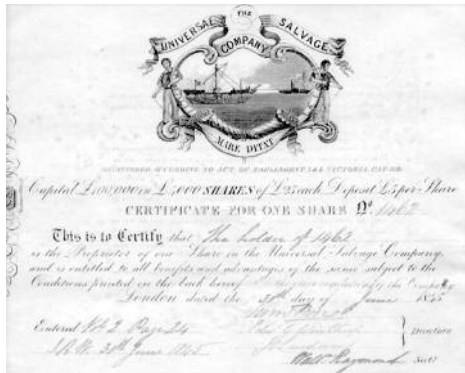 THE
UNIVERSAL SALVAGE
COMPANY
MARE DITAT
REGISTERED ACCORDING TO ACT OF PARLIAMENT
Capital £100,000 in SHARES of £25 each Deposit £5 per Share
CERTIFICATE FOR ONE SHARE No. 1462
This is to Certify that The holder of 1462
is the Proprietor of one Share in the Universal Salvage Company,
and is entitled to all benefits and advantages of the same subject to the
Conditions printed on the back hereof
London dated the 30th day of June 1845
Entered Page 24
Directors
30th June 1845
Raymond Sec.